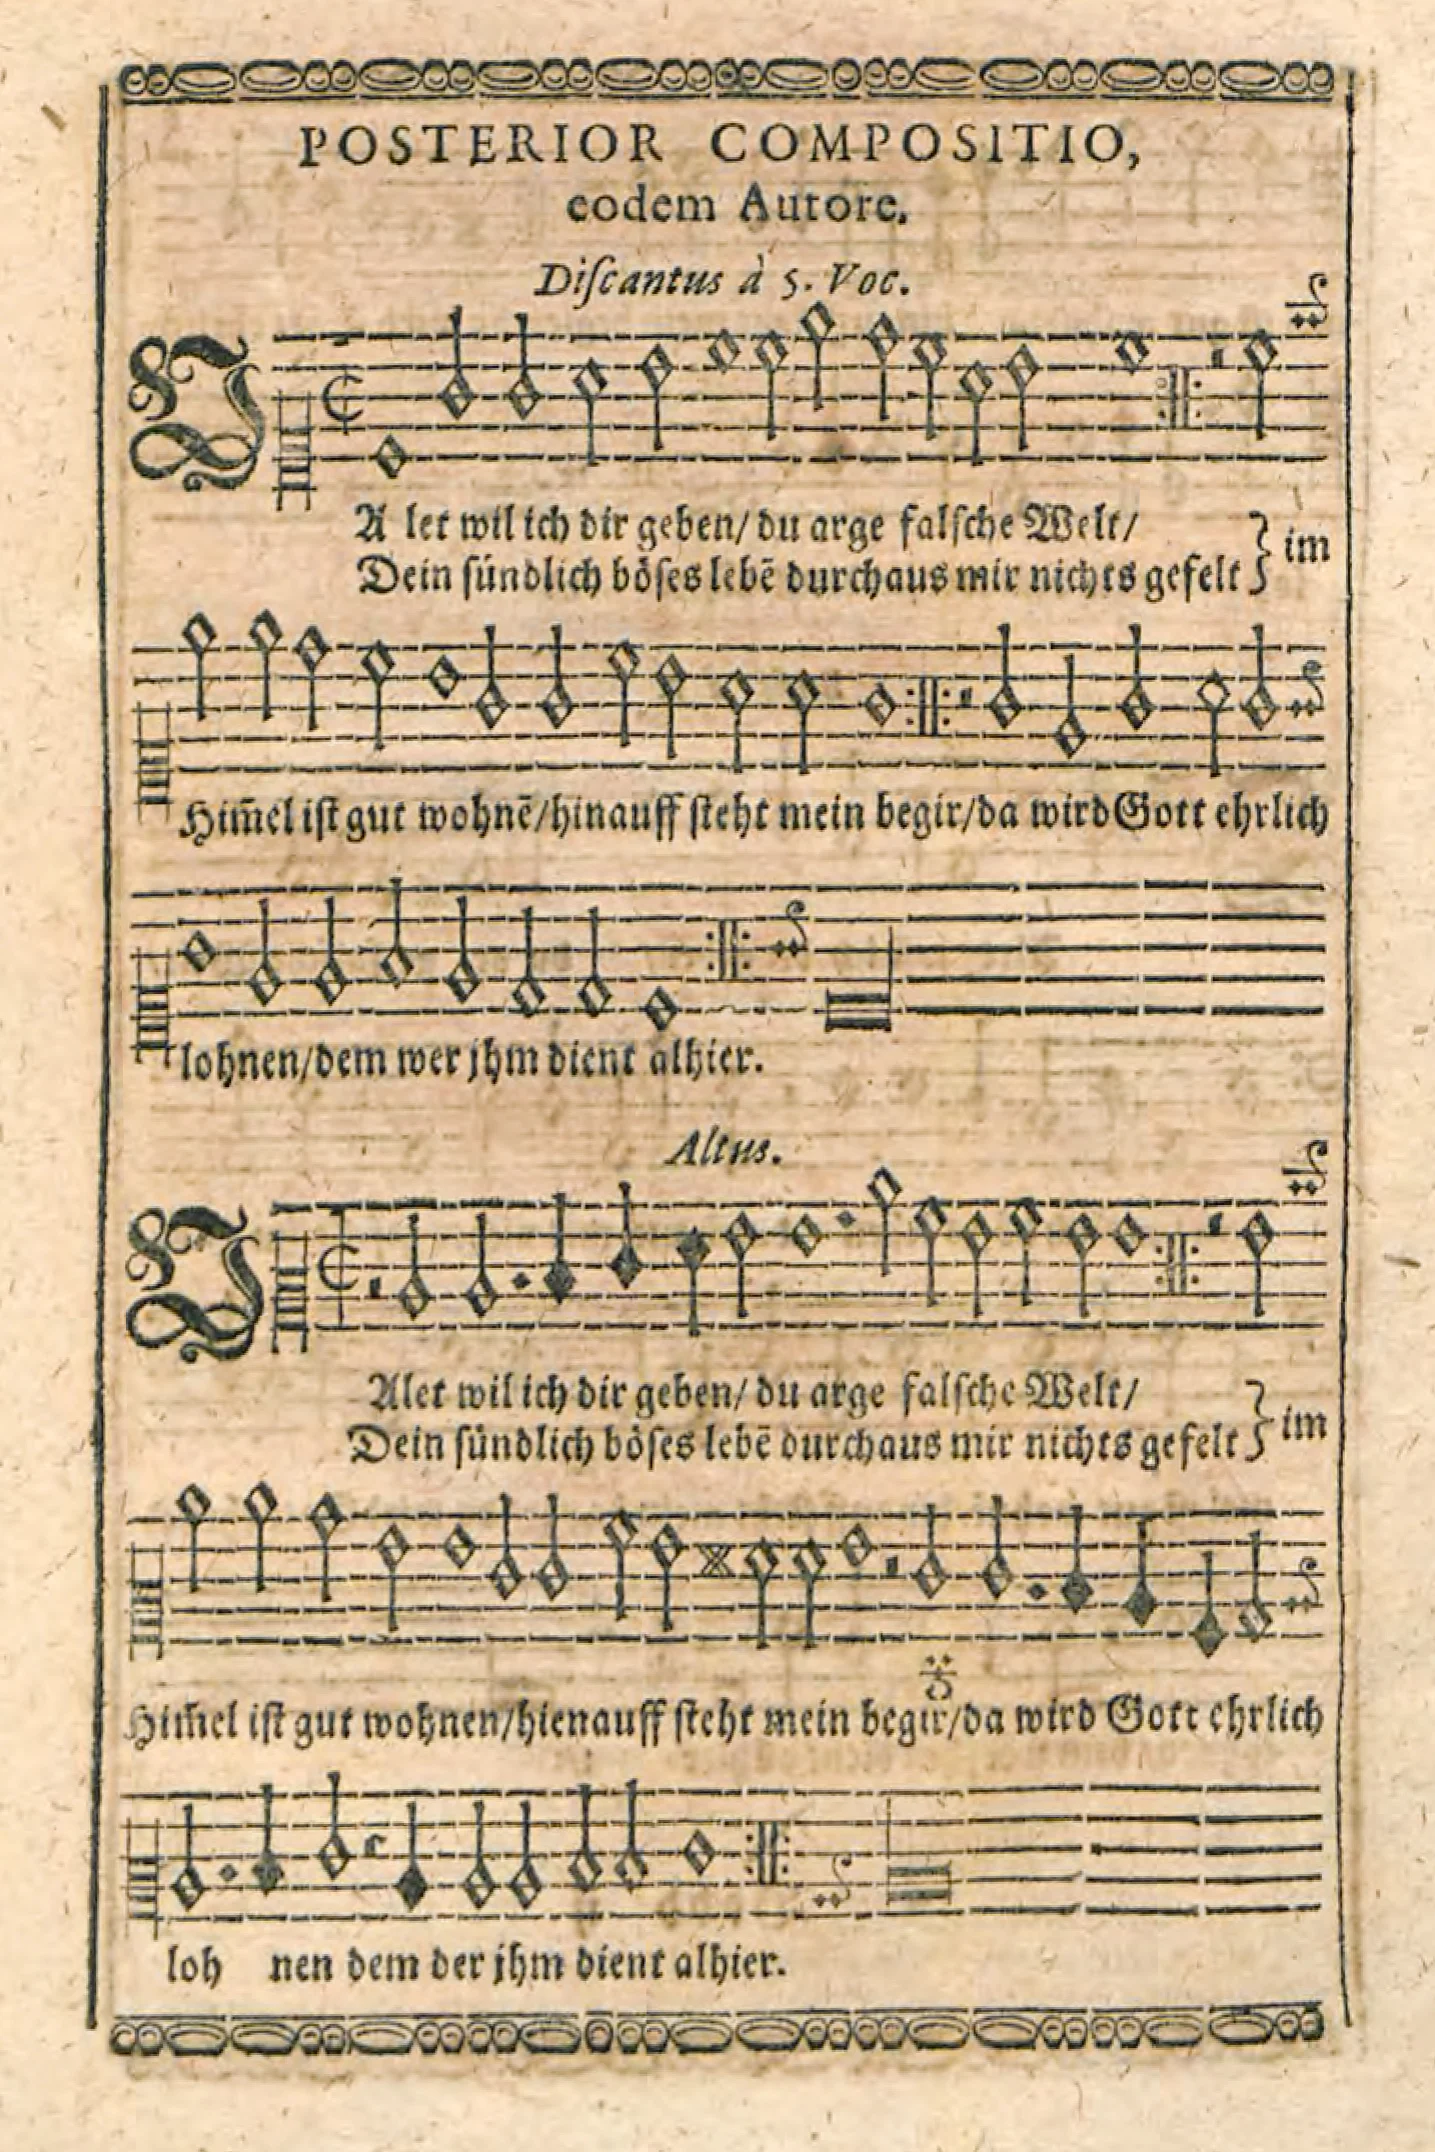 POSTERIOR COMPOSITIO,
eodem Autore.
Diſcantus à 5. Voc.
V
A let wil ich dir geben/ du arge falſche Welt/
Dein ſündlich böſes lebē durchaus mir nichts gefelt } im
Him̄el iſt gut wohnē/hinauff ſteht mein begir/da wird Gott ehrlich
lohnen/dem wer jhm dient alhier.
Altus.
V
Alet wil ich dir geben/ du arge falſche Welt/
Dein ſündlich böſes lebē durchaus mir nichts gefelt } im
Him̄el iſt gut wohnen/hienauff ſteht mein begir/da wird Gott ehrlich
loh nen dem der jhm dient alhier.